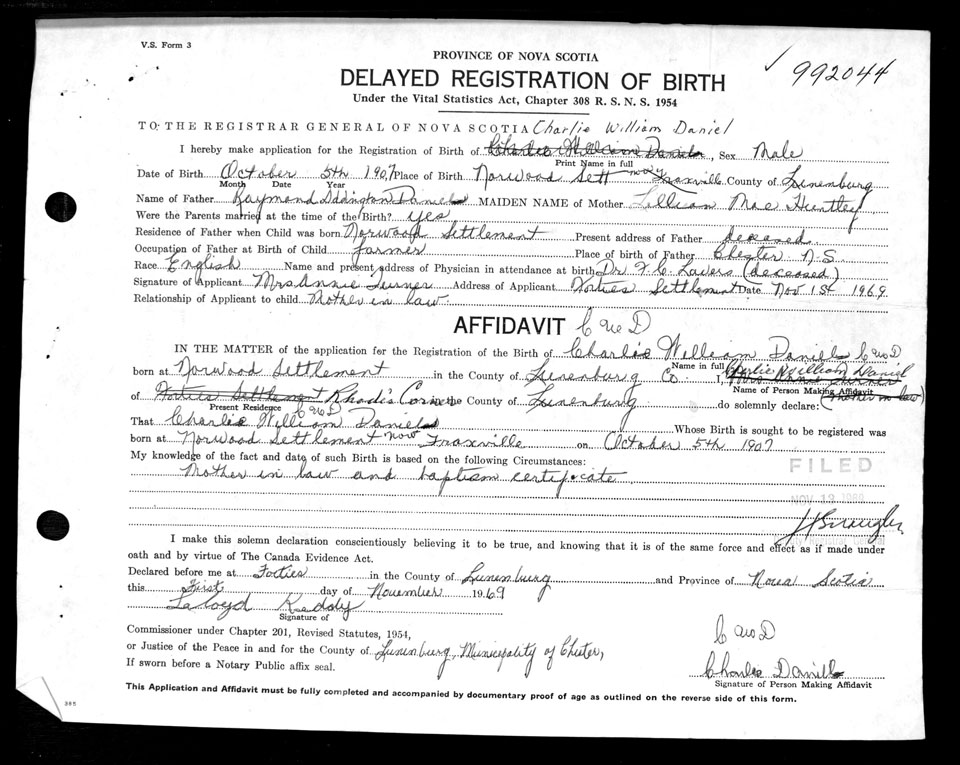 V.S. Form 3
PROVINCE OF NOVA SCOTIA
992044
DELAYED REGISTRATION OF BIRTH
Under the Vital Statistics Act, Chapter 308 R. S. N. S. 1954
TO THE REGISTRAR GENERAL OF NOVA SCOTIA Charlie William Daniel
I hereby make application for the Registration of Birth of Charles William Daniels, Sex Male
Print Name in full
Date of Birth October 5th 1907 Place of Birth Norwood Sett now Fraxville County of Lunenburg
Month Date Year
Name of Father Raymond Ddington Daniels MAIDEN NAME of Mother Lillian Mae Huntley
Were the Parents married at the time of the Birth? yes
Residence of Father when Child was born Norwood Settlement Present address of Father deceased
Occupation of Father at Birth of Child farmer Place of birth of Father Chester N.S.
Race English Name and present address of Physician in attendance at birth Dr F. C. Lavers (deceased)
Signature of Applicant Mrs Annie Turner Address of Applicant Forties Settlement Date Nov 1st 1969
Relationship of Applicant to child Mother in law
AFFIDAVIT C W D
IN THE MATTER of the application for the Registration of the Birth of Charlie William Daniels C W D
Name in full
born at Norwood Settlement in the County of Lunenburg Co. I, Charlie William Daniel
Name of Person Making Affidavit
of Forties Settlement Rhodis Corner in the County of Lunenburg do solemnly declare: (mother in law)
Present Residence C W D
That Charlie William Daniels Whose Birth is sought to be registered was
born at Norwood Settlement now Fraxville on October 5th 1907
My knowledge of the fact and date of such Birth is based on the following Circumstances:
FILED
Mother in law and baptism certificate
NOV 12
I make this solemn declaration conscientiously believing it to be true, and knowing that it is of the same force and effect as if made under
oath and by virtue of The Canada Evidence Act.
Declared before me at Forties in the County of Lunenburg and Province of Nova Scotia
this First day of November 1969
Laloyd Keddy
Signature of
Commissioner under Chapter 201, Revised Statutes, 1954,
C W D
or Justice of the Peace in and for the County of Lunenburg, Municipality of Chester,
If sworn before a Notary Public affix seal.
Charlie Daniels
Signature of Person Making Affidavit
This Application and Affidavit must be fully completed and accompanied by documentary proof of age as outlined on the reverse side of this form.
385